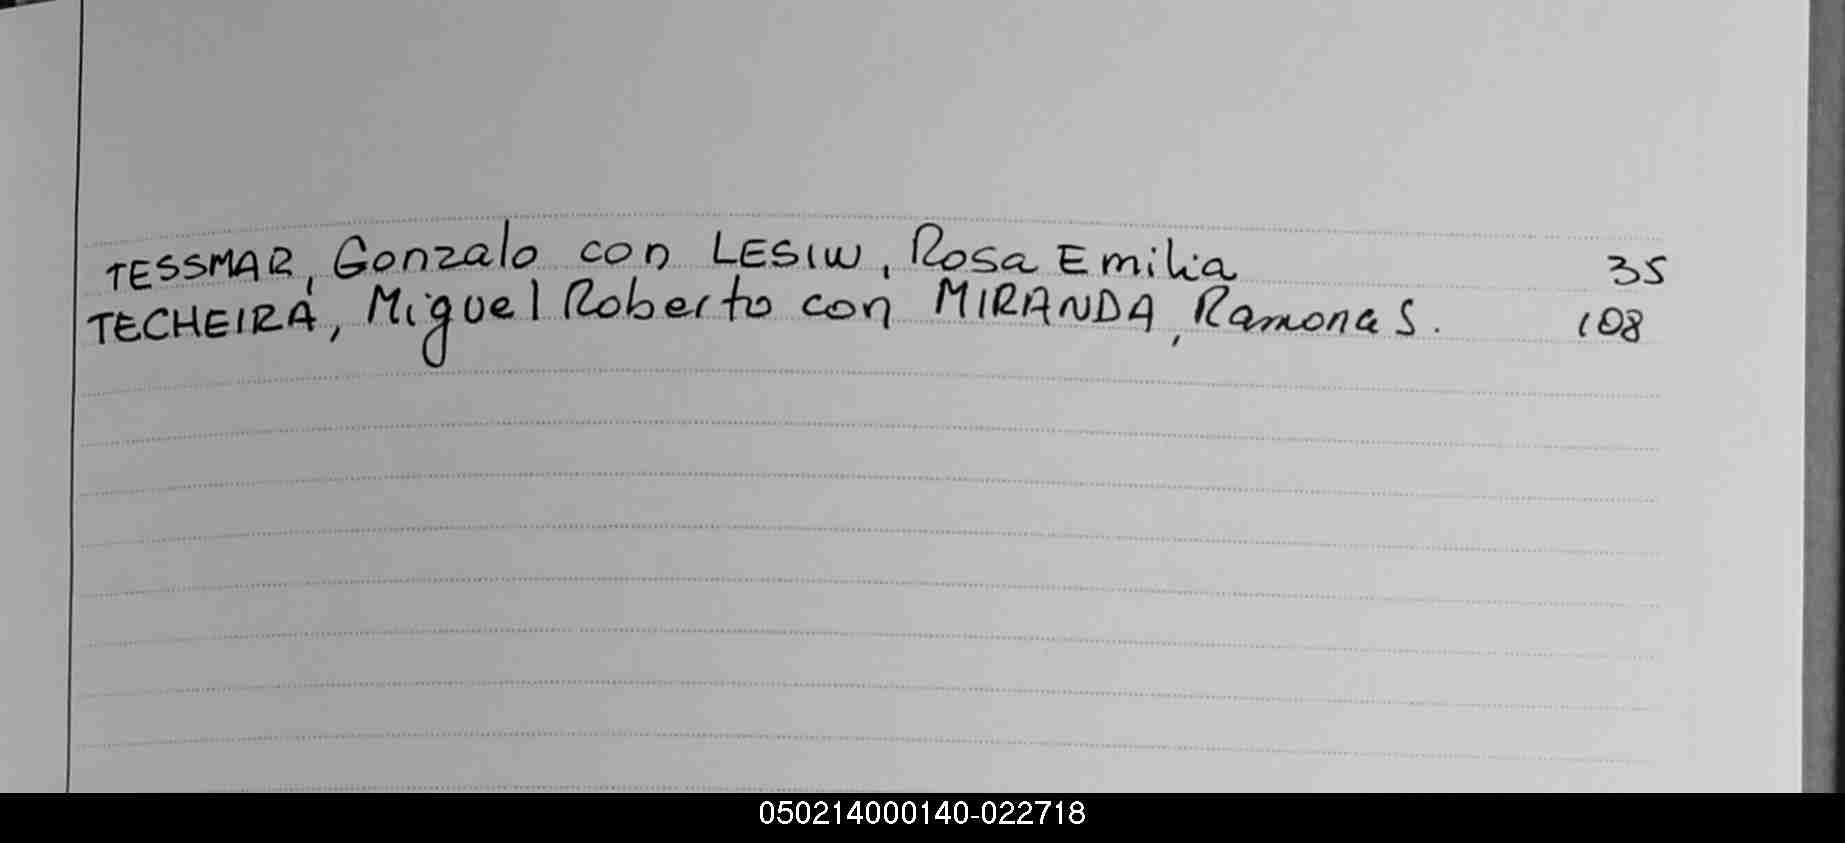 TESSMAR, Gonzalo con LESIW, Rosa Emilia 35
TECHEIRA, Miguel Roberto con MIRANDA, Ramona S. 108
050214000140-022718